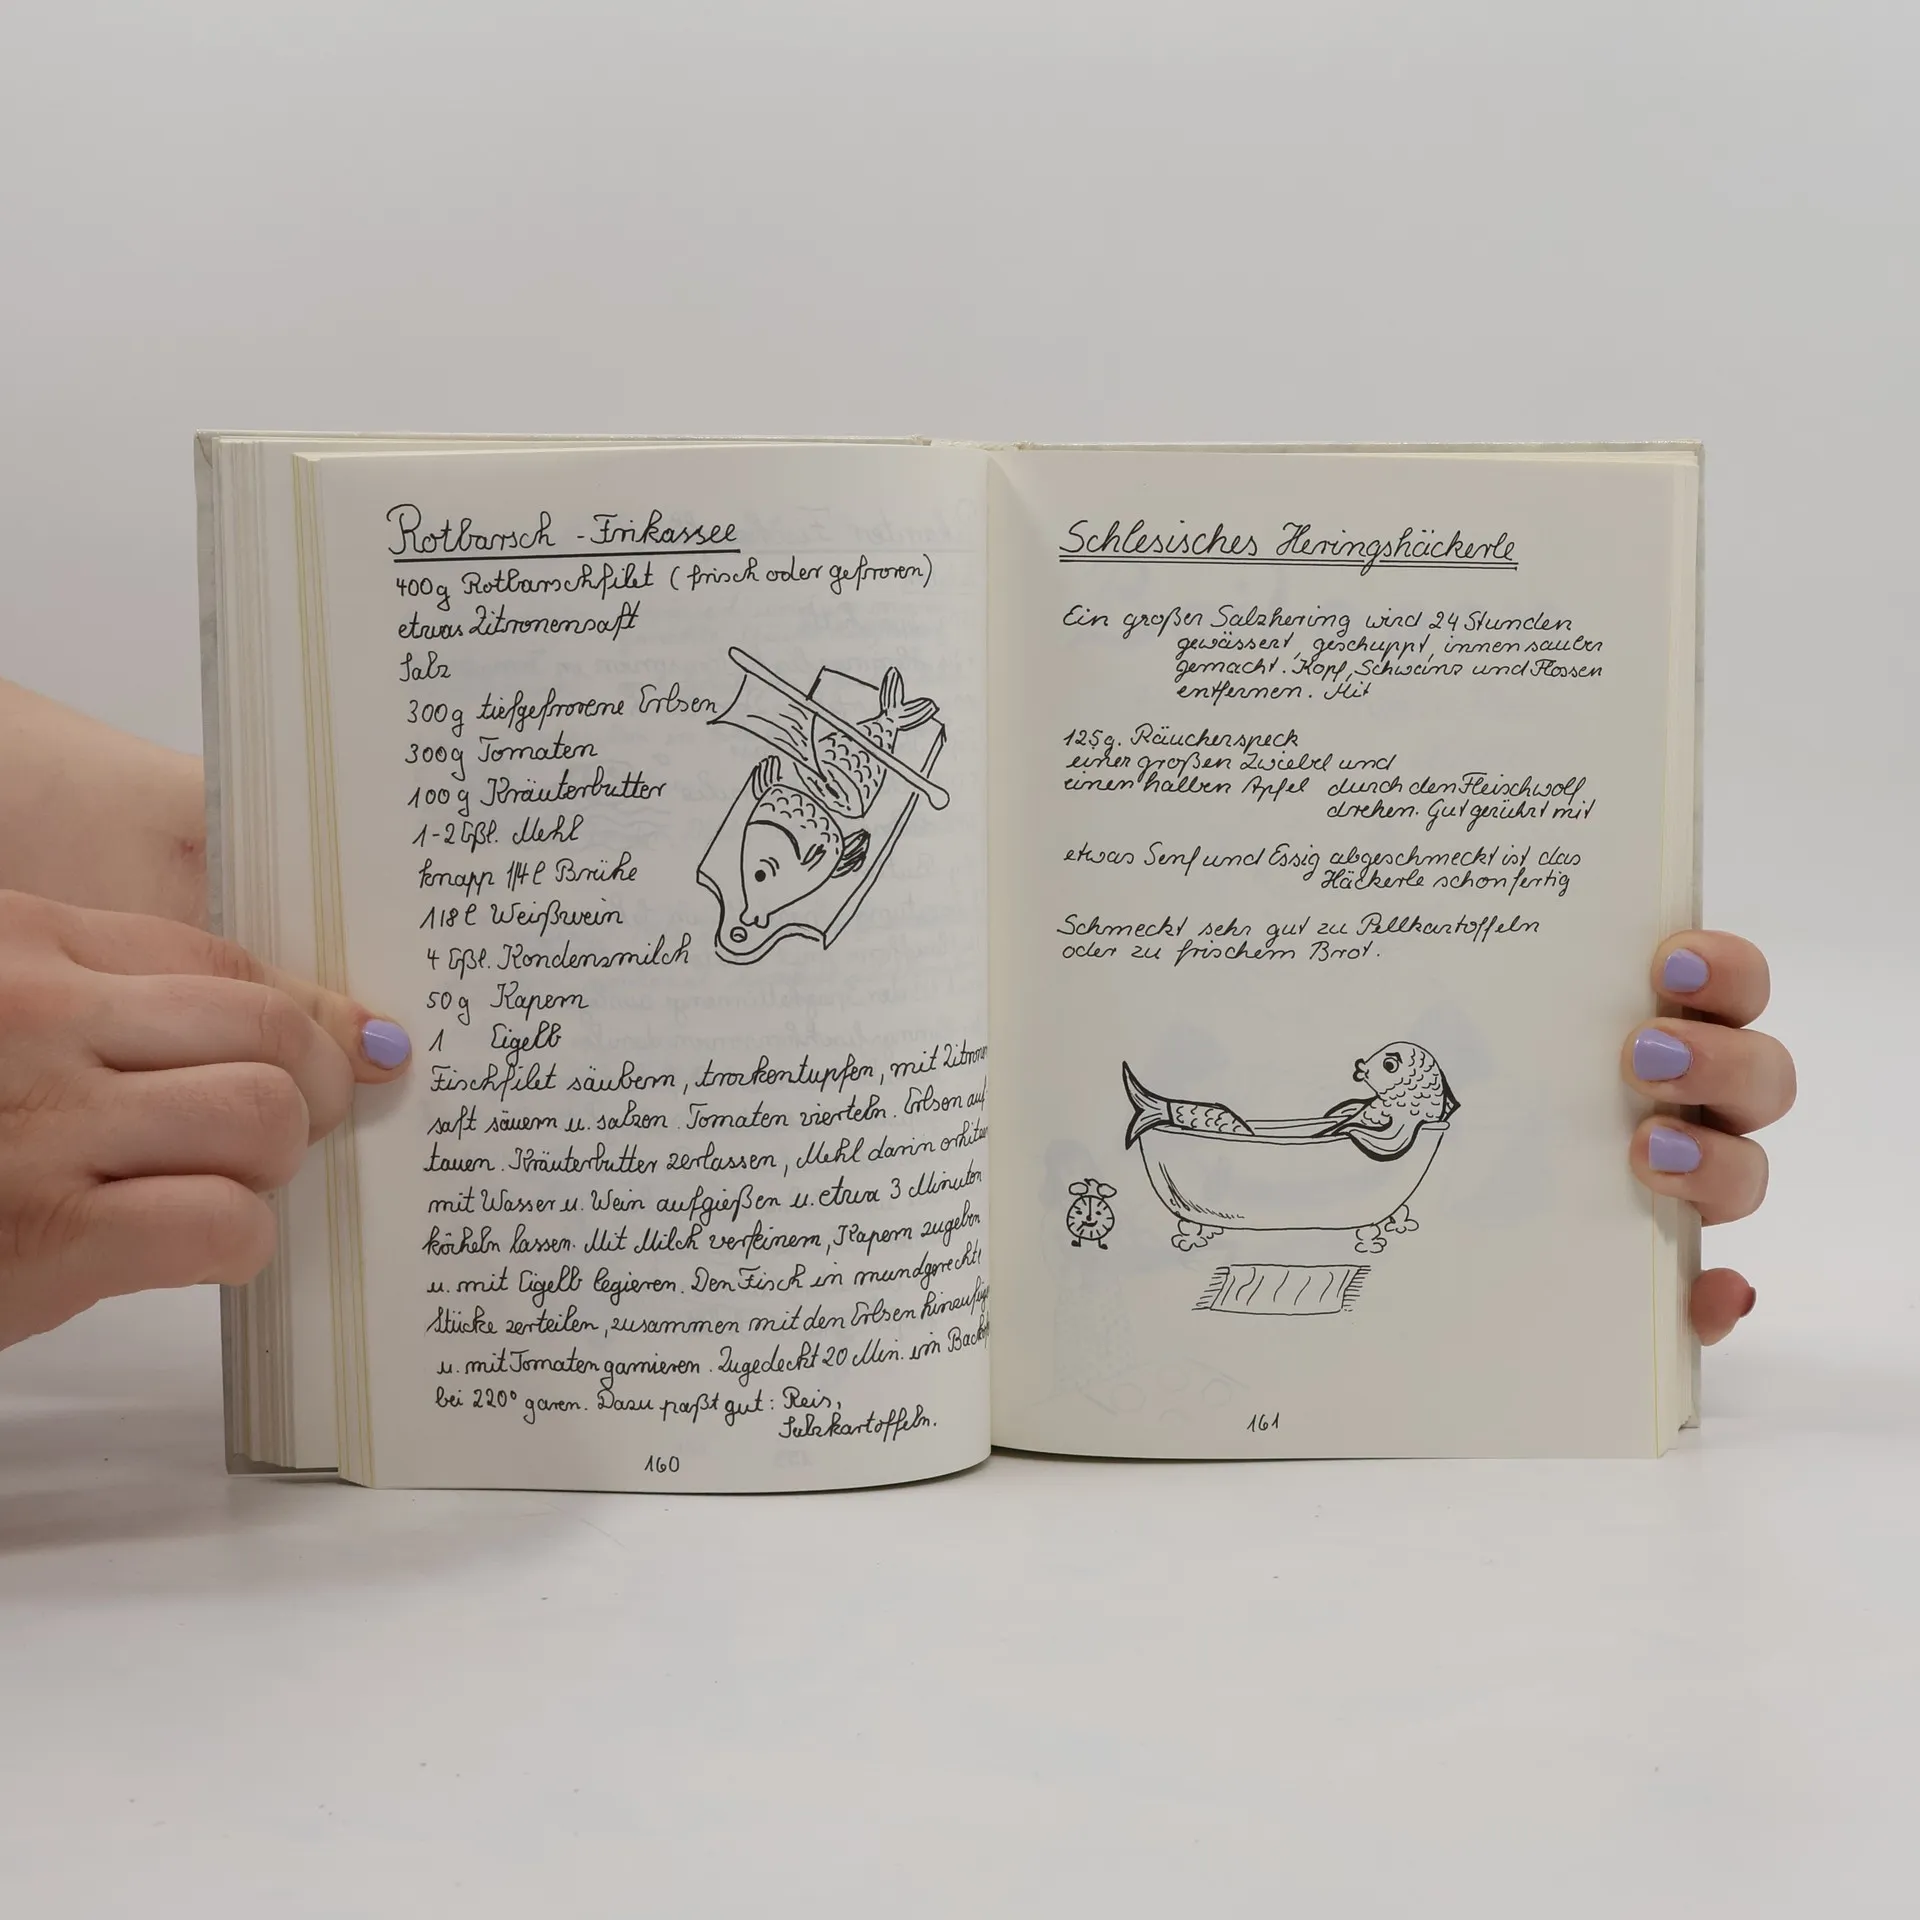 Rotbarsch - Frikassee
400g Rotbarschfilet (frisch oder gefroren)
etwas Zitronensaft
Salz
300g tiefgefrorene Erbsen
300g Tomaten
100g Kräuterbutter
1-2 Eßl. Mehl
knapp 1/4 l Brühe
1/8 l Weißwein
4 Eßl. Kondensmilch
50g Kapern
1 Eigelb
Fischfilet säubern, trockentupfen, mit Zitronen
saft säuern u. salzen. Tomaten vierteln. Erbsen auf
tauen. Kräuterbutter zerlassen, Mehl darin
mit Wasser u. Wein aufgießen u. etwa 3 Minuten
köcheln lassen. Mit Milch verfeinern, Kapern zugeben
u. mit Eigelb legieren. Den Fisch in mundgerechte
Stücke zerteilen, zusammen mit den Erbsen
u. mit Tomaten garnieren. Zugedeckt 20 Min. im
bei 220° garen. Dazu paßt gut: Reis,
Salzkartoffeln.
160
Schlesisches Heringshäckerle
Ein großer Salzhering wird 24 Stunden
gewässert, geschuppt, innen sauber
gemacht. Kopf, Schwanz und Flossen
entfernen. Mit
125g. Räucherspeck
einer großen Zwiebel und
einen halben Apfel durch den Fleischwolf
drehen. Gut gerührt mit
etwas Senf und Essig abgeschmeckt ist das
Häckerle schon fertig
Schmeckt sehr gut zu Pellkartoffeln
oder zu frischem Brot.
161